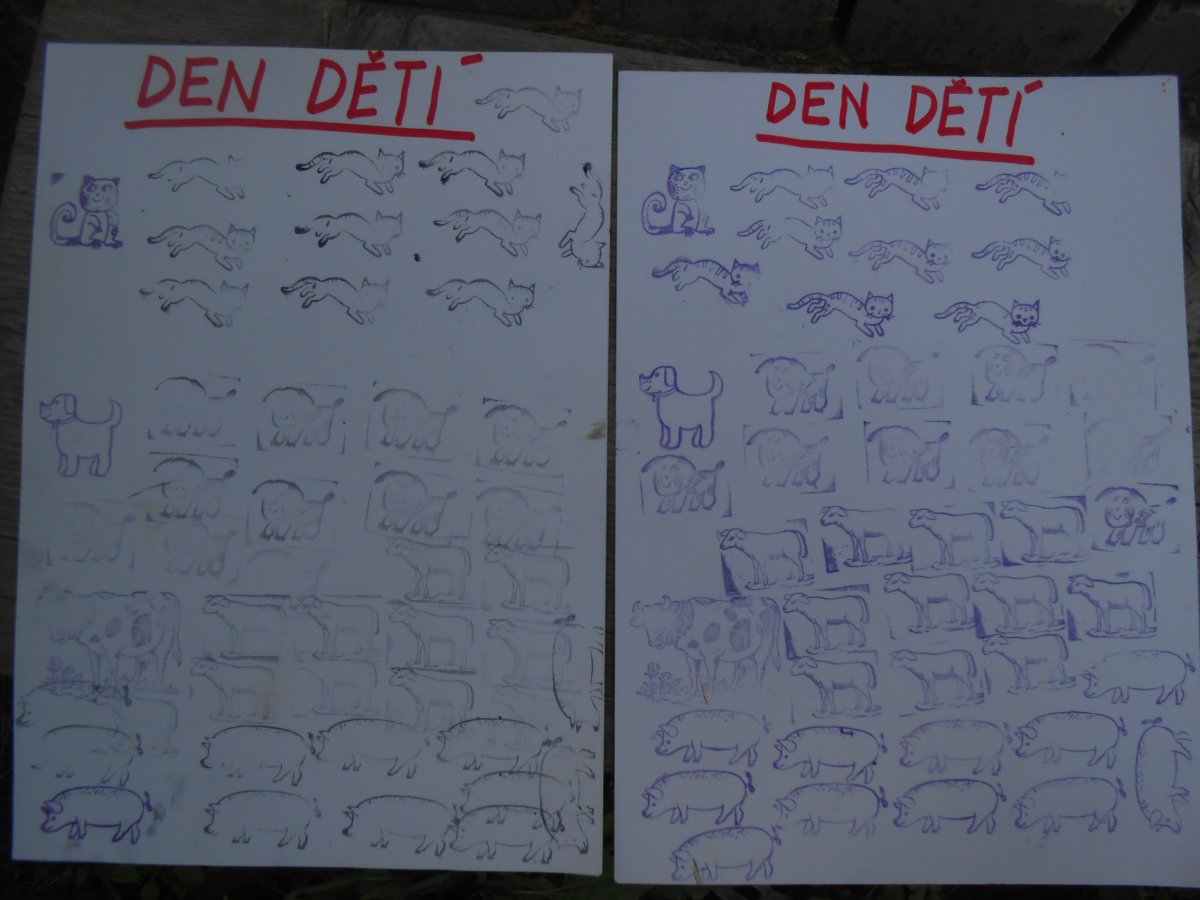 DEN DĚTÍ
DEN DĚTÍ